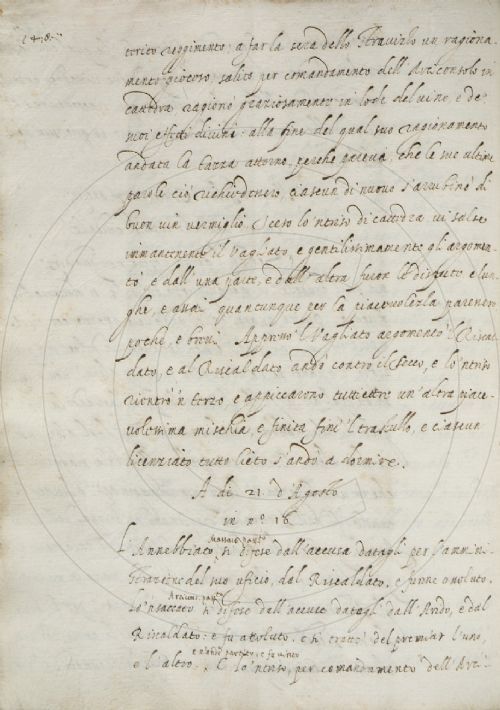 torito reggimento; a far la sera dello Stravizzo un ragiona-
mento giocoso, salito per comandamento dell' Arciconsolo in
cattedra ragionò graziosamente in lode del vino, e de'
suoi effetti divini: alla fine del qual suo ragionamento
andata la tazza attorno, perchè pareva, che le sue ultime
parole ciò richiedesero, ciascun di nuovo s'arrubinò di
buon vin vermiglio. Sceso lo 'nferigno di cattedra vi salse
immantenente il Vagliato, e gentilissimamente gli argomen-
tò e dall' una parte, e dall' altra furon le dispute e lun-
ghe, e assai quantunque per la piacevolezza paressero
poche, e brevi. Appresso 'l Vagliato argomentò 'l Riscal-
dato, e al Riscaldato andò contro il Secco, e lo 'nferigno
rientrò 'n terzo e appiccarono tutti e tre un' altra piace-
volissima mischia, e finita finì 'l trastullo, e ciascun
licenziato tutto lieto s'andò a dormire.
A dì 21 d'Agosto
in n.° 16
L'Annebbiato, si difese dall' accusa datagli per l'ammini-
strazione del suo uficio, dal Riscaldato, e funne assoluto.
Lo 'nsaccato si difese dall' accuse datogli dall' Ardo, e dal
Riscaldato: e fu assoluto. e si trattò del premiar l'uno,
e l'altro. E lo 'nferigno, per comandamento dell' Arci-